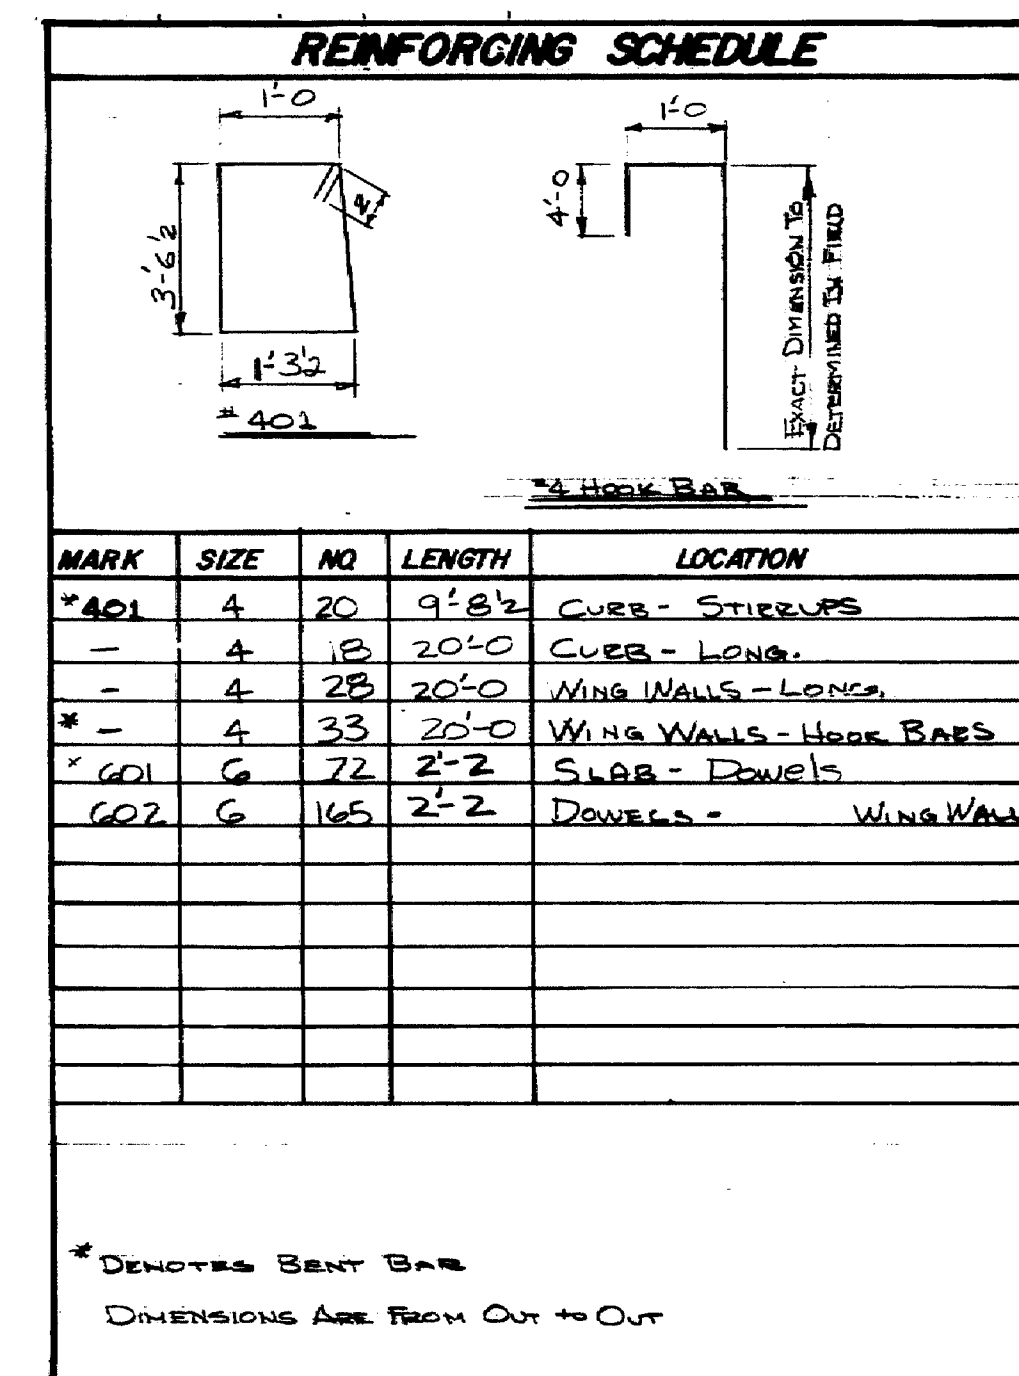 REINFORCING SCHEDULE
1'-0
1'-0
4'-0
3'-6½
1'-3½
# 401
EXACT DIMENSION TO
DETERMINED IN FIELD
#4 HOOK BAR
MARK SIZE NO LENGTH LOCATION
*401 4 20 9'-8½ CURB - STIRRUPS
— 4 18 20'-0 CURB - LONG.
- 4 28 20'-0 WING WALLS - LONG.
* — 4 33 20'-0 WING WALLS - HOOK BARS
* 601 6 72 2'-2 SLAB - Dowels
602 6 165 2'-2 DOWELS - WING WALL
* DENOTES BENT BAR
DIMENSIONS ARE FROM OUT to OUT